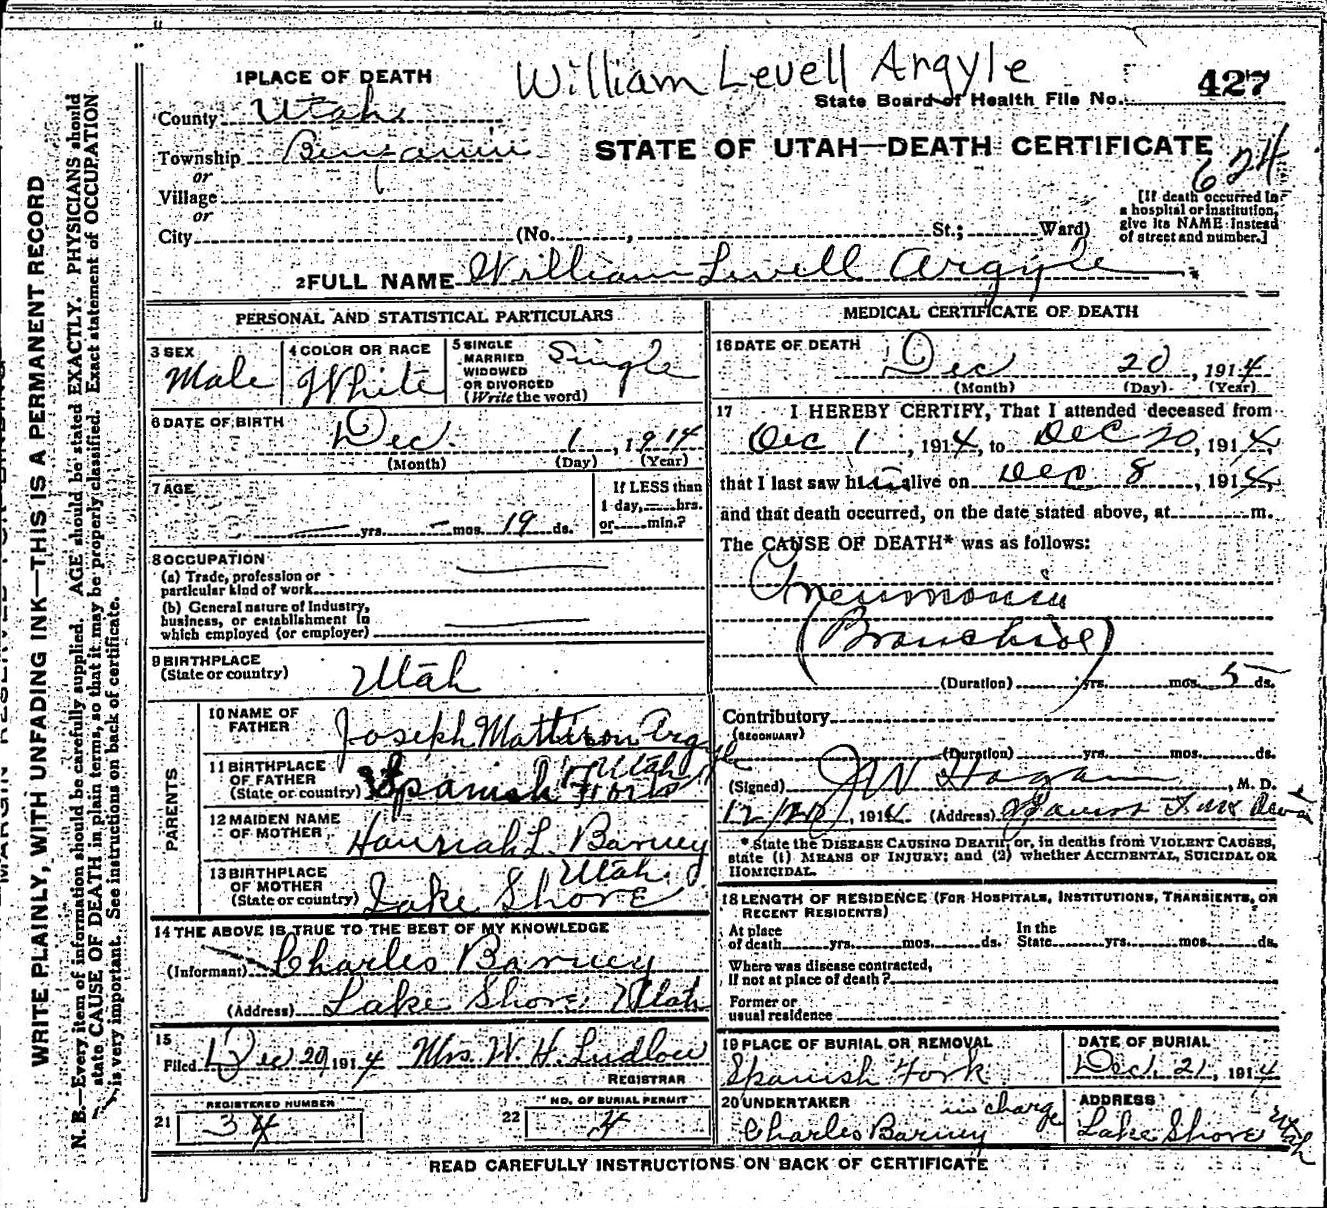 William Levell Argyle
427
1 PLACE OF DEATH
State Board of Health File No.
County Utah
Township Benjamin
STATE OF UTAH—DEATH CERTIFICATE
624
or
Village
or
City (No. , St.; Ward)
[If death occurred in a hospital or institution, give its NAME instead of street and number.]
2 FULL NAME William Levell Argyle
PERSONAL AND STATISTICAL PARTICULARS
3 SEX Male
4 COLOR OR RACE White
5 SINGLE MARRIED WIDOWED OR DIVORCED (Write the word) Single
6 DATE OF BIRTH Dec. 1, 1914
(Month) (Day) (Year)
7 AGE
yrs. mos. 19 ds.
If LESS than 1 day, hrs. or min.?
8 OCCUPATION
(a) Trade, profession or particular kind of work
(b) General nature of Industry, business, or establishment in which employed (or employer)
9 BIRTHPLACE (State or country) Utah
PARENTS
10 NAME OF FATHER Joseph Mattison Argyle
11 BIRTHPLACE OF FATHER (State or country) Spanish Fork Utah
12 MAIDEN NAME OF MOTHER Hannah L. Barney
13 BIRTHPLACE OF MOTHER (State or country) Lake Shore Utah
14 THE ABOVE IS TRUE TO THE BEST OF MY KNOWLEDGE
(Informant) Charles Barney
(Address) Lake Shore Utah
15
Filed Dec 29 1914 Mrs. W. H. Ludlow
REGISTRAR
REGISTERED NUMBER
21 34
NO. OF BURIAL PERMIT
22 4
MEDICAL CERTIFICATE OF DEATH
16 DATE OF DEATH
Dec 20, 1914
(Month) (Day) (Year)
17 I HEREBY CERTIFY, That I attended deceased from
Dec 1, 1914, to Dec 20, 1914,
that I last saw him alive on Dec 8, 1914,
and that death occurred, on the date stated above, at m.
The CAUSE OF DEATH* was as follows:
Pneumonia
(Bronchial)
(Duration) yrs. mos. 5 ds.
Contributory
(SECONDARY)
(Duration) yrs. mos. ds.
(Signed) J W Hagan, M. D.
12/20, 1914 (Address) Spanish Fork
* State the DISEASE CAUSING DEATH, or, in deaths from VIOLENT CAUSES,
state (1) MEANS OF INJURY; and (2) whether ACCIDENTAL, SUICIDAL OR
HOMICIDAL.
18 LENGTH OF RESIDENCE (FOR HOSPITALS, INSTITUTIONS, TRANSIENTS, OR
RECENT RESIDENTS)
At place of death yrs. mos. ds. In the State yrs. mos. ds.
Where was disease contracted,
If not at place of death?
Former or
usual residence
19 PLACE OF BURIAL OR REMOVAL Spanish Fork
DATE OF BURIAL Dec. 21, 1914
20 UNDERTAKER in charge Charles Barney
ADDRESS Lake Shore Utah
READ CAREFULLY INSTRUCTIONS ON BACK OF CERTIFICATE
WRITE PLAINLY, WITH UNFADING INK—THIS IS A PERMANENT RECORD
N. B.—Every item of information should be carefully supplied. AGE should be stated EXACTLY. PHYSICIANS should
state CAUSE OF DEATH in plain terms, so that it may be properly classified. Exact statement of OCCUPATION
is very important. See instructions on back of certificate.